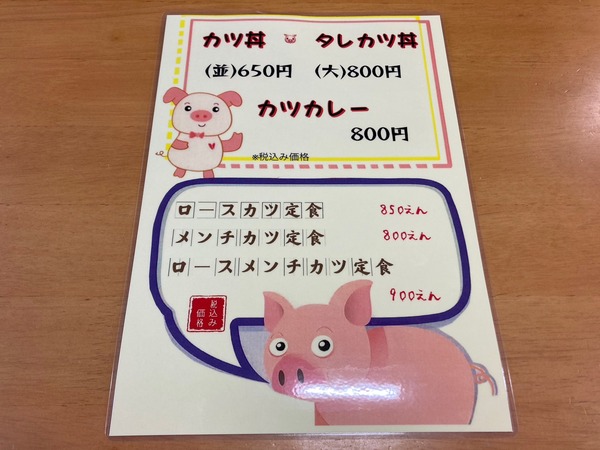 カツ丼 タレカツ丼
(並)650円 (大)800円
カツカレー
800円
※税込み価格
ロースカツ定食 850えん
メンチカツ定食 800えん
ロースメンチカツ定食
900えん
税込み
価格